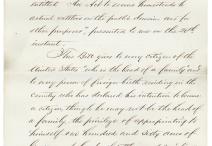 entitled "An Act to secure homesteads to
actual settlers on the public domain, and for
other purposes", presented to me on the 20th
instant.
This Bill gives to every citizen of the
United States "who is the head of a family" and to
every person of foreign birth residing in the
country who has declared his intention to become
a citizen though he may not be the head of
a family the privilege of appropriating to
himself one hundred and sixty acres of